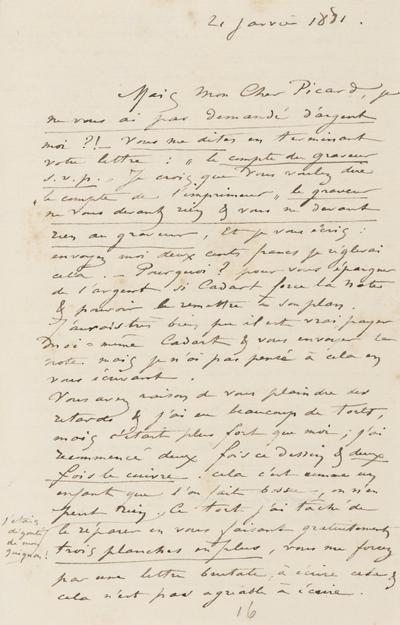 21 Janvier 1881.
Mais mon Cher Picard, je
ne vous ai pas demandé d'argent
moi ?!- Vous me dites en terminant
votre lettre : "le compte du graveur
s.v.p. - Je crois que vous voulez dire
"le compte de l'imprimeur" le graveur
ne vous devant rien & vous ne devant
rien au graveur, Et je vous écris :
envoyez moi deux cents francs je règlerai
cela. - Pourquoi ? pour vous épargner
de l'argent si Cadart force la note
& pouvoir le remettre à son plan.
J'aurais très bien, que il est vrai payer
moi-même Cadart & vous envoyer la
note mais je n'ai pas pensé à cela en
vous écrivant.
Vous avez raison de vous plaindre des
retards & j'ai eu beaucoup de torts,
mais c'était plus fort que moi ; j'ai
recommencé deux fois ce dessin & deux
fois le cuivre. cela c'est comme un
enfant que l'on fait bossu, on n'en
peut rien. Ce tort j'ai tâché de
le réparer en vous faisant gratuitement
trois planches en plus, vous me forcez
par une lettre brutale, à écrire cela &
cela n'est pas agréable à écrire.
j'étais
dégouté
de mon
guignon !
16